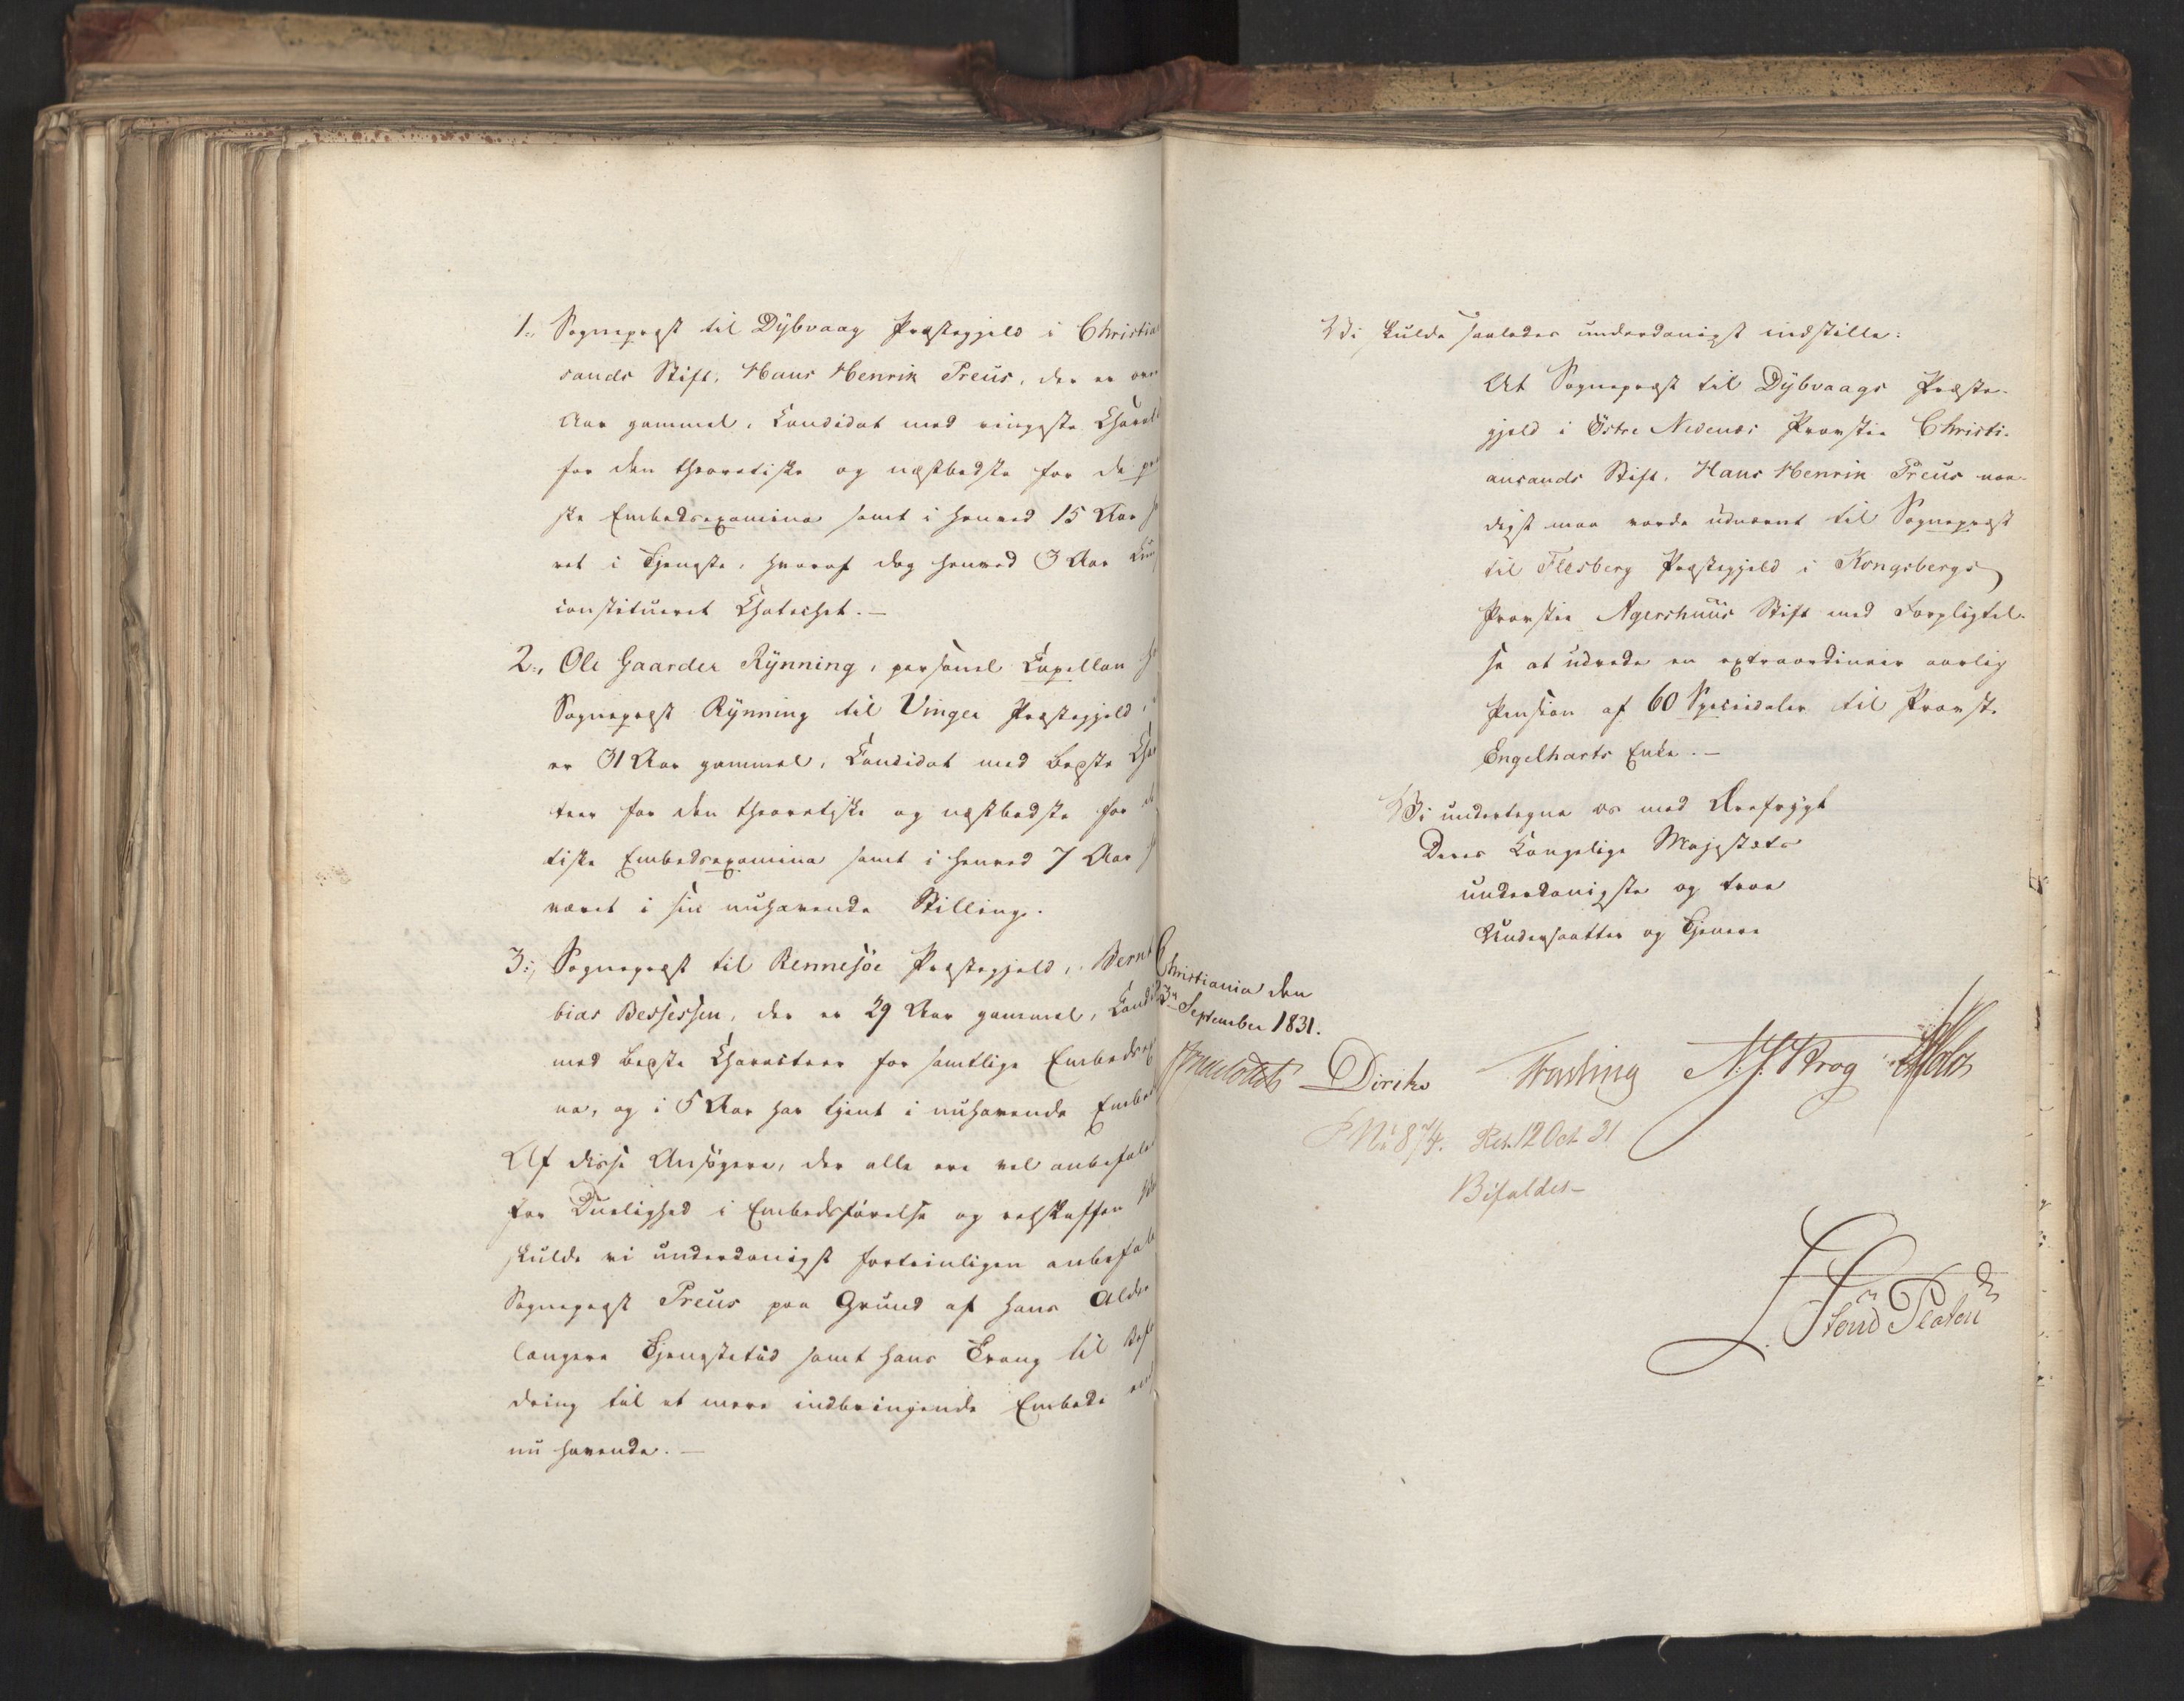 1., Sognepræst til Dÿbvaag Præstegjeld i Christia
sands Stift, Hans Henrik Preus, der er
Aar gammel, Candidat med ringeste Charakt
for den theoretiske og næstbedste for de
ske Embedsexamina samt i henved 15 Aar
ret i Tjeneste, hvoraf dog henved 3 Aar
constitueret Chatechet.—
2., Ole Gaarder Rÿnning, personel Capellan
Sognepræst Rÿnning til Vinger Præstegjeld,
er 31 Aar gammel, Candidat med bedste Cha
teer for den theoretiske og næstbedste for
tiske Embedsexamina samt i henved 7 Aar
været i sin nuhavende Stilling.
3., Sognepræst til Rennesöe Præstegjeld, Bernt
bias Bessessen, der er 29 Aar gammel, Candid
med bedste Charakteer for samtlige Embedsex
na, og i 5 Aar har tjent i nuhavende Embe
Af disse Ansögere, der alle ere vel anbefale
for Duelighed i Embedsförelse og retskaffen
skulde vi underdanigst fortrinligen anbefale
Sognepræst Preus paa Grund af hans Alder
længere Tjenestetid samt hans Trang til
dring til et mere indbringende Embede end
nu havende.—
Vi skulde saaledes underdanigst indstille:
At Sognepræst til Dÿbvaags Præste-
gjeld i Östre Nedenæs Provstie Christi-
ansands Stift, Hans Henrik Preus naa-
digst maa vorde udnævnt til Sognepræst
til Flesberg Præstegjeld i Kongsbergs
Provstie Agershuus Stift med Forpligtel-
se at udrede en extraordinair aarlig
Pension af 60 Speciedaler til Provst
Engelharts Enke.—
Vi undertegne os med Ærefrÿgt
Deres Kongelige Majestæts
underdanigste og troe
Undersaatter og Tjenere
Christiania den
3n September 1831.
Diriks Fasting N. J. Krog
No 874. Res. 12 Oct 31
Bifaldes—
Platen